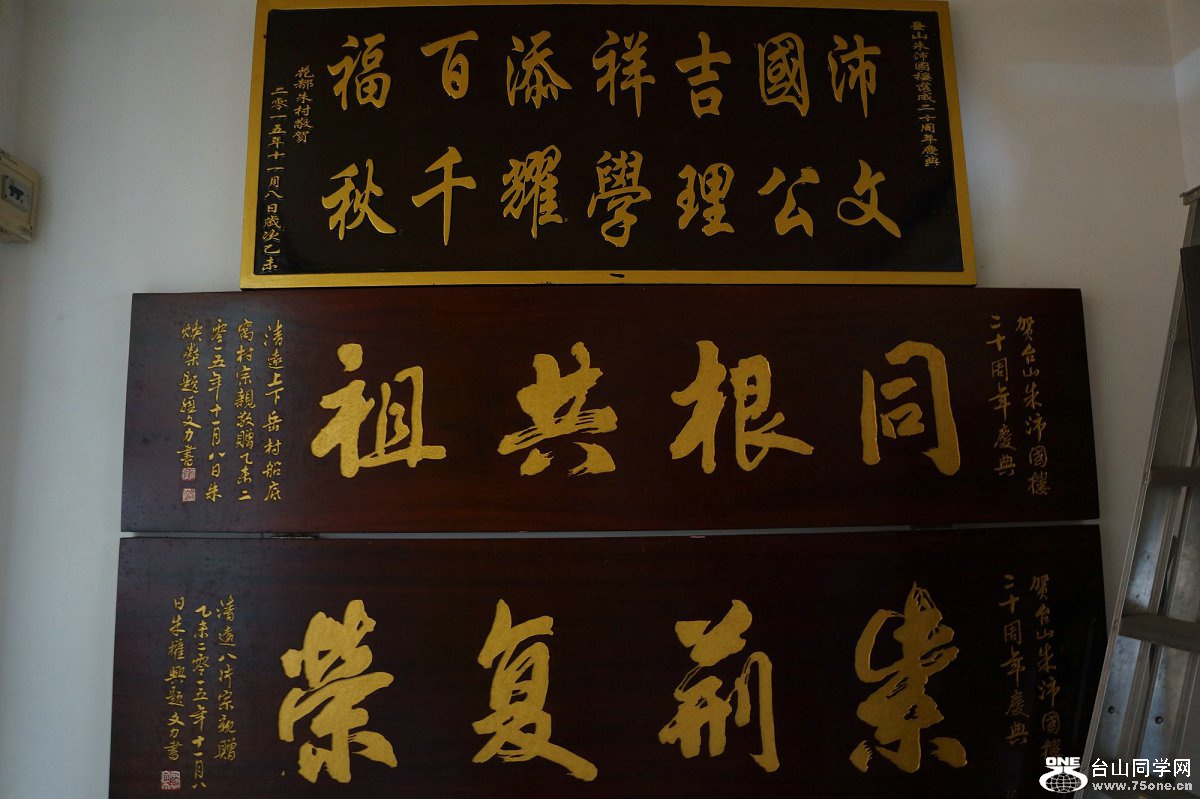 臺山朱沛國樓落成二十周年慶典
沛國吉祥添百福
文公理學耀千秋
花都朱村敬賀
二零一五年十一月八日歲次乙未
贺台山朱沛國樓
二十周年慶典
同根共祖
清遠上下岳村船底
窩村宗親敬贈乙未二
零一五年十一月八日朱
焕榮題經文力書
贺台山朱沛國樓
二十周年慶典
紫荊复榮
清遠八片宗親贈
乙未二零一五年十一月八
日朱耀興題文力書
ONE
台山同学网
www.75one.cn